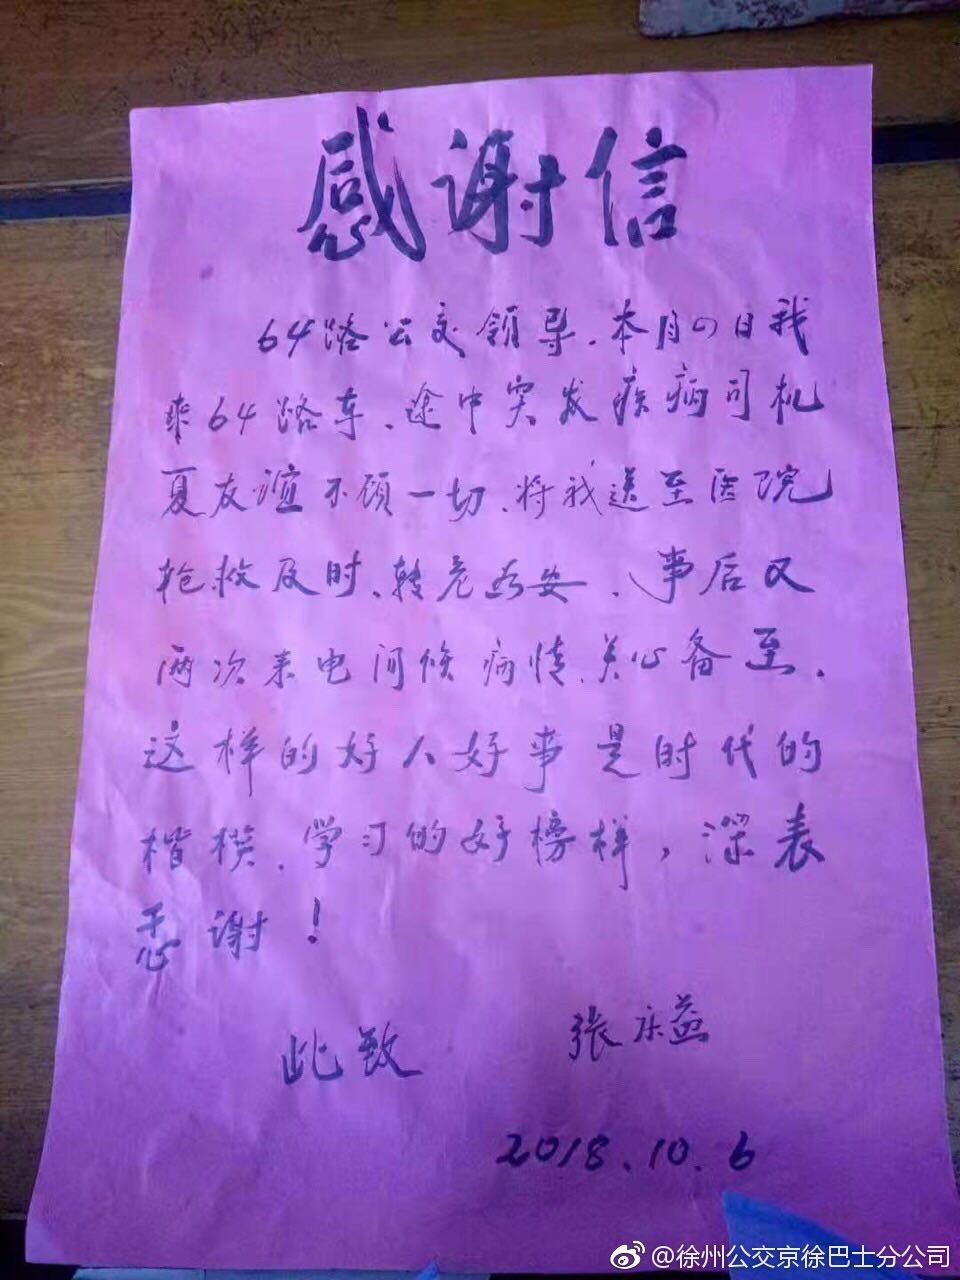 感谢信
64路公交领导、本月の日我
乘64路车、途中突发疾病司机
夏友谊不顾一切、将我送至医院
抢救及时、转危为安、事后又
两次来电问候病情、关心备至、
这样的好人好事是时代的
楷模、学习的好榜样，深表
感谢！
此致 张庆益
2018.10.6
@徐州公交京徐巴士分公司